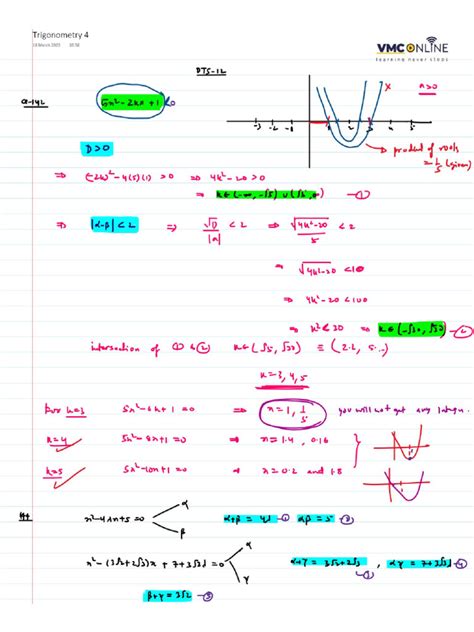 Trigonometry 4
VMC ONLINE
learning never stops
DTS-12
Q-142 5x²-2kx+1 <0
a>0
D>0
product of roots = 1/5 (given)
⇒ (-2k)²-4(5)(1) >0 ⇒ 4k²-20>0
⇒ k∈(-∞,-√5)∪(√5,∞) ①
⇒ |α-β|<2 ⇒ √D/|a| <2 ⇒ √4k²-20/5 <2
⇒ √4k²-20 <10
⇒ 4k²-20<100
⇒ k²<30 ⇒ k∈(-√30,√30) ②
intersection of ① & ② k∈(√5,√30) ≡ (2.2, 5...)
k=3,4,5
For k=3 5x²-6x+1=0 ⇒ x=1, 1/5 you will not get any integer.
k=4 5x²-8x+1=0 ⇒ x=1.4, 0.16
k=5 5x²-10x+1=0 ⇒ x=0.2 and 1.8
x²-4λx+5=0 α β α+β=4λ ① αβ=5 ②
x²-(3√2+2√3)x+7+3√3λ=0 α γ α+γ=3√2+2√3 αγ=7+3√3λ ④
β+γ=3√2 ⑤